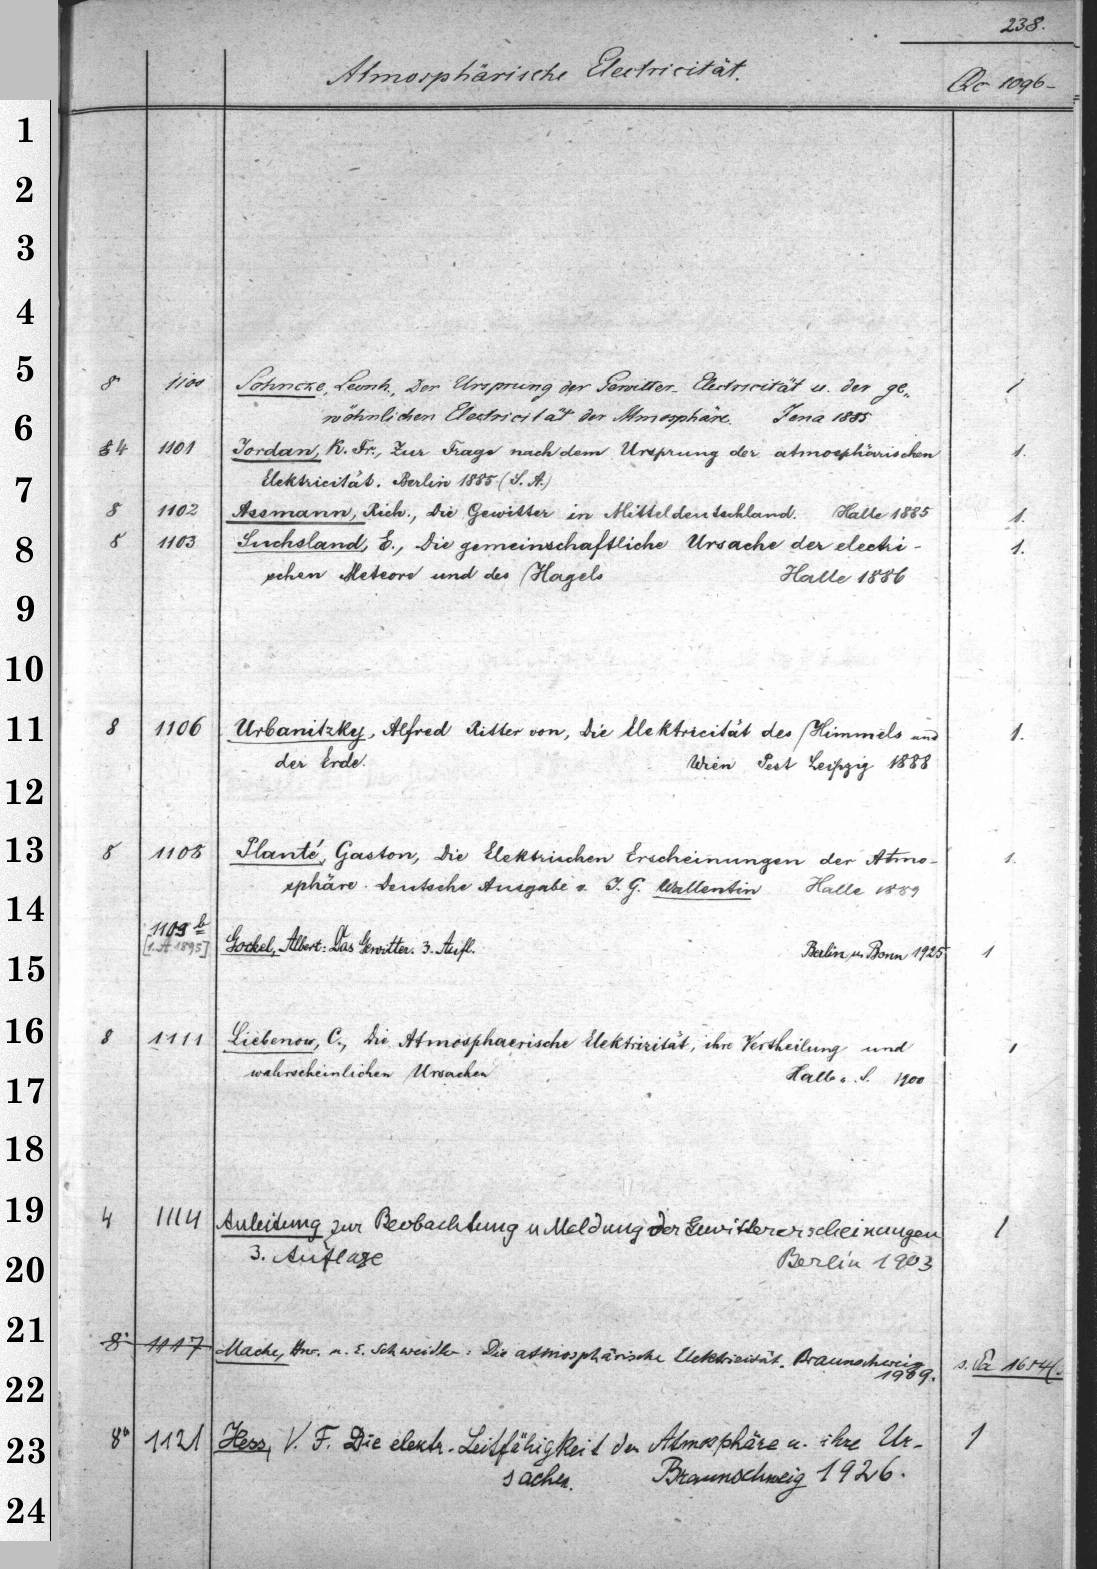 238.
Atmosphärische Electricität. Qc 1096-
1
2
3
4
5
8 1100 Sohncke, Leonh., Der Ursprung der Gewitter-Electricität u. der ge- 1
wöhnlichen Electricität der Atmosphäre. Jena 1885
6
4 1101 Jordan, K. Fr., Zur Frage nach dem Ursprung der atmosphärischen 1.
Elektricität. Berlin 1885 (S. A.)
7
8 1102 Assmann, Rich., Die Gewitter in Mitteldeutschland. Halle 1885 1.
8
8 1103 Suchsland, E., Die gemeinschaftliche Ursache der electri- 1.
schen Meteore und des Hagels Halle 1886
9
10
11
8 1106 Urbanitzky, Alfred Ritter von, Die Elektricität des Himmels und 1.
der Erde. Wien Pest Leipzig 1888
12
13
8 1108 Planté, Gaston, Die Elektrischen Erscheinungen der Atmo- 1.
sphäre. Deutsche Ausgabe v. I. G. Wallentin Halle 1889
14
1109 b
[1. A 1895] Gockel, Albert: Das Gewitter. 3. Aufl. Berlin u. Bonn 1925 1
15
16
8 1111 Liebenow, C., Die Atmosphaerische Elektrizität, ihre Vertheilung und 1
wahrscheinlichen Ursachen Halle a. S. 1900
17
18
19
4 1114 Anleitung zur Beobachtung u Meldung der Gewittererscheinungen 1
3. Auflage Berlin 1903
20
21
8° 1117 Mache, Hnr. u. E. Schweidler: Die atmosphärische Elektricität. Braunschweig
1909. s. 1654
22
8° 1121 Hess, V. F. Die elektr. Leitfähigkeit der Atmosphäre u. ihre Ur- 1
23
sachen. Braunschweig 1926.
24